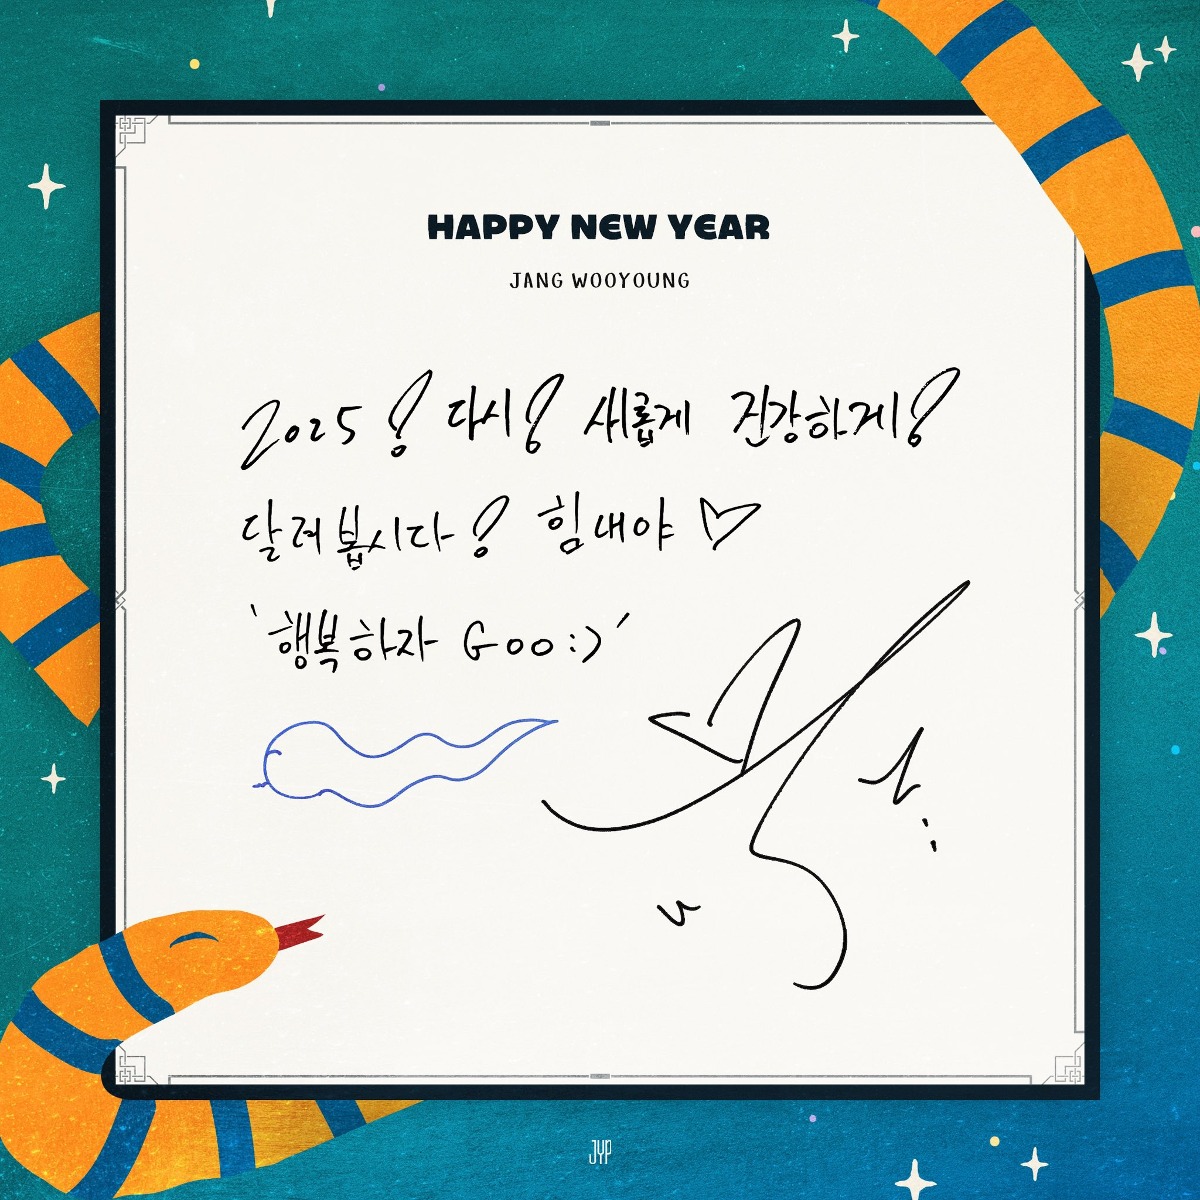 HAPPY NEW YEAR
JANG WOOYOUNG
2025! 다시! 새롭게 건강하게!
달려봅시다! 힘내야 ♡
'행복하자 Goo:)'
JYP